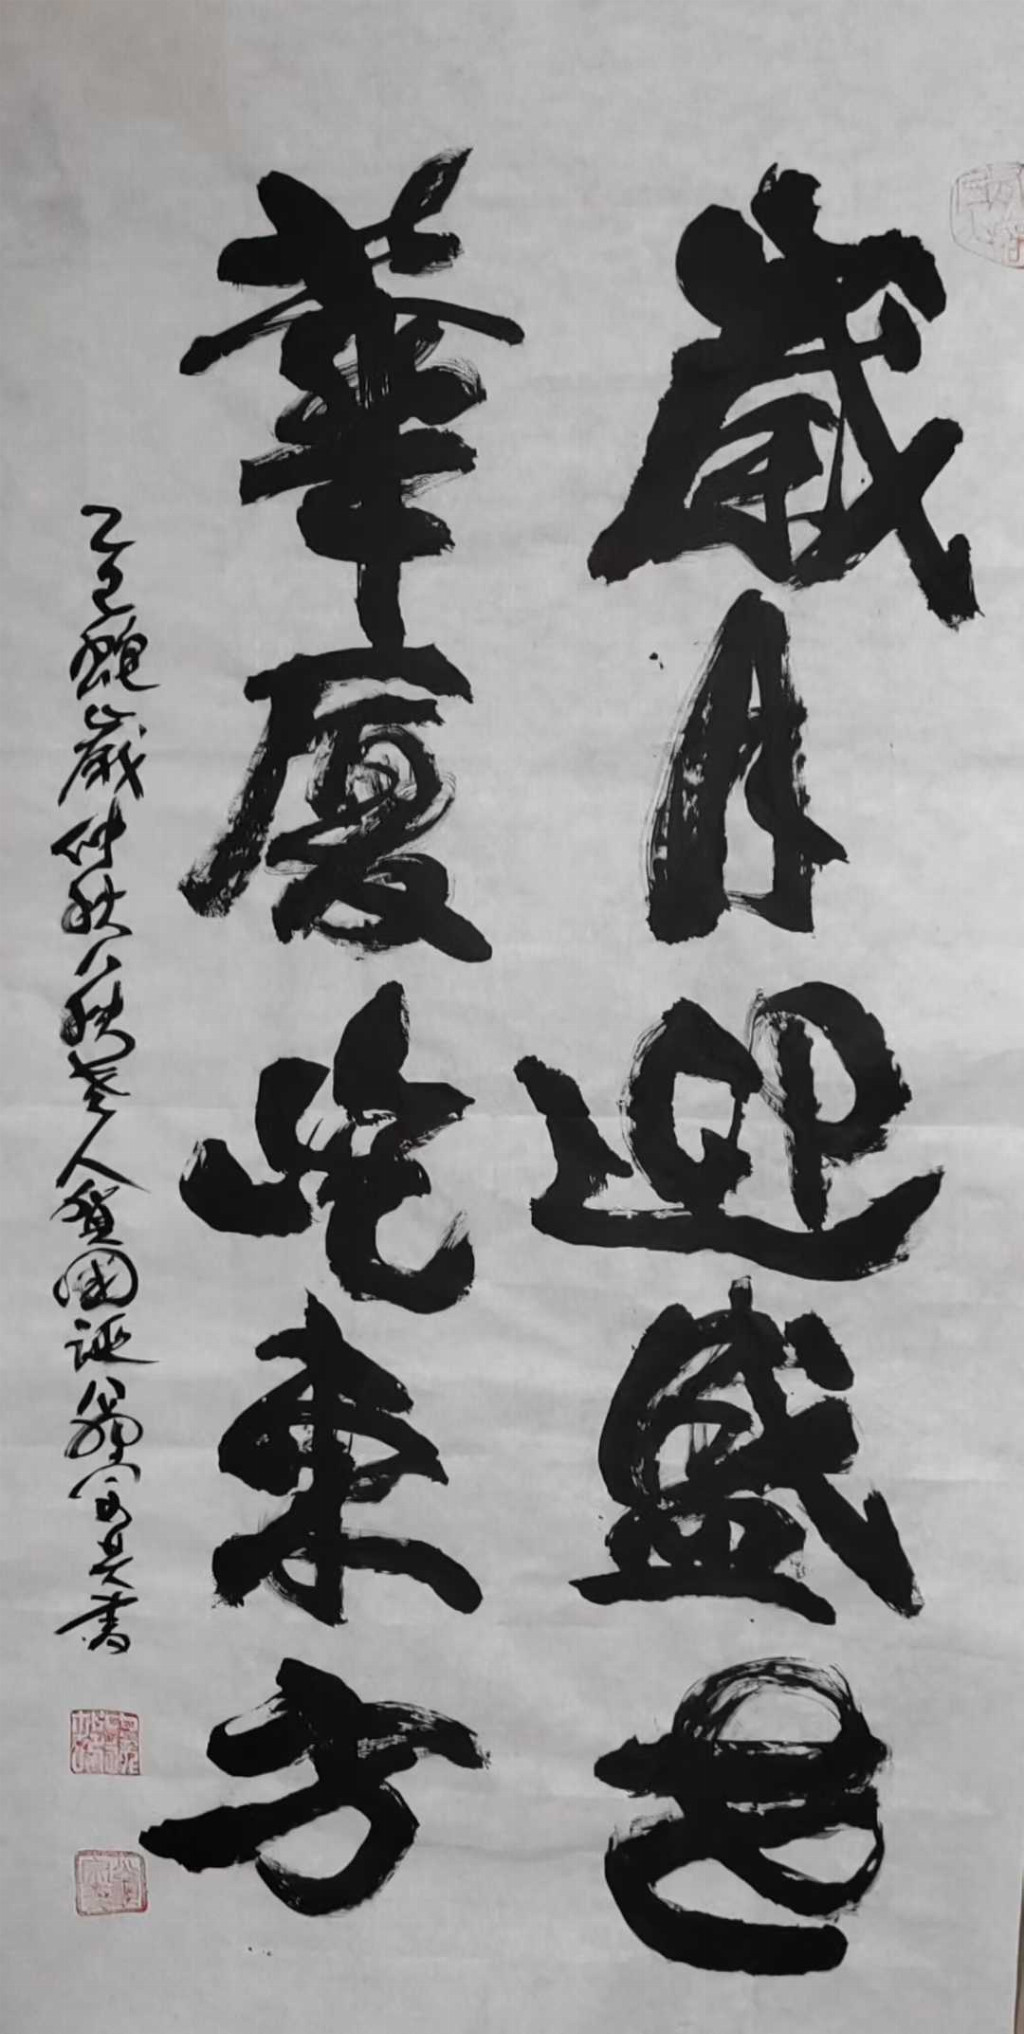 歲月迎盛世
華厦屹東方
乙巳蛇歲仲秋八秩老人賀國誕書